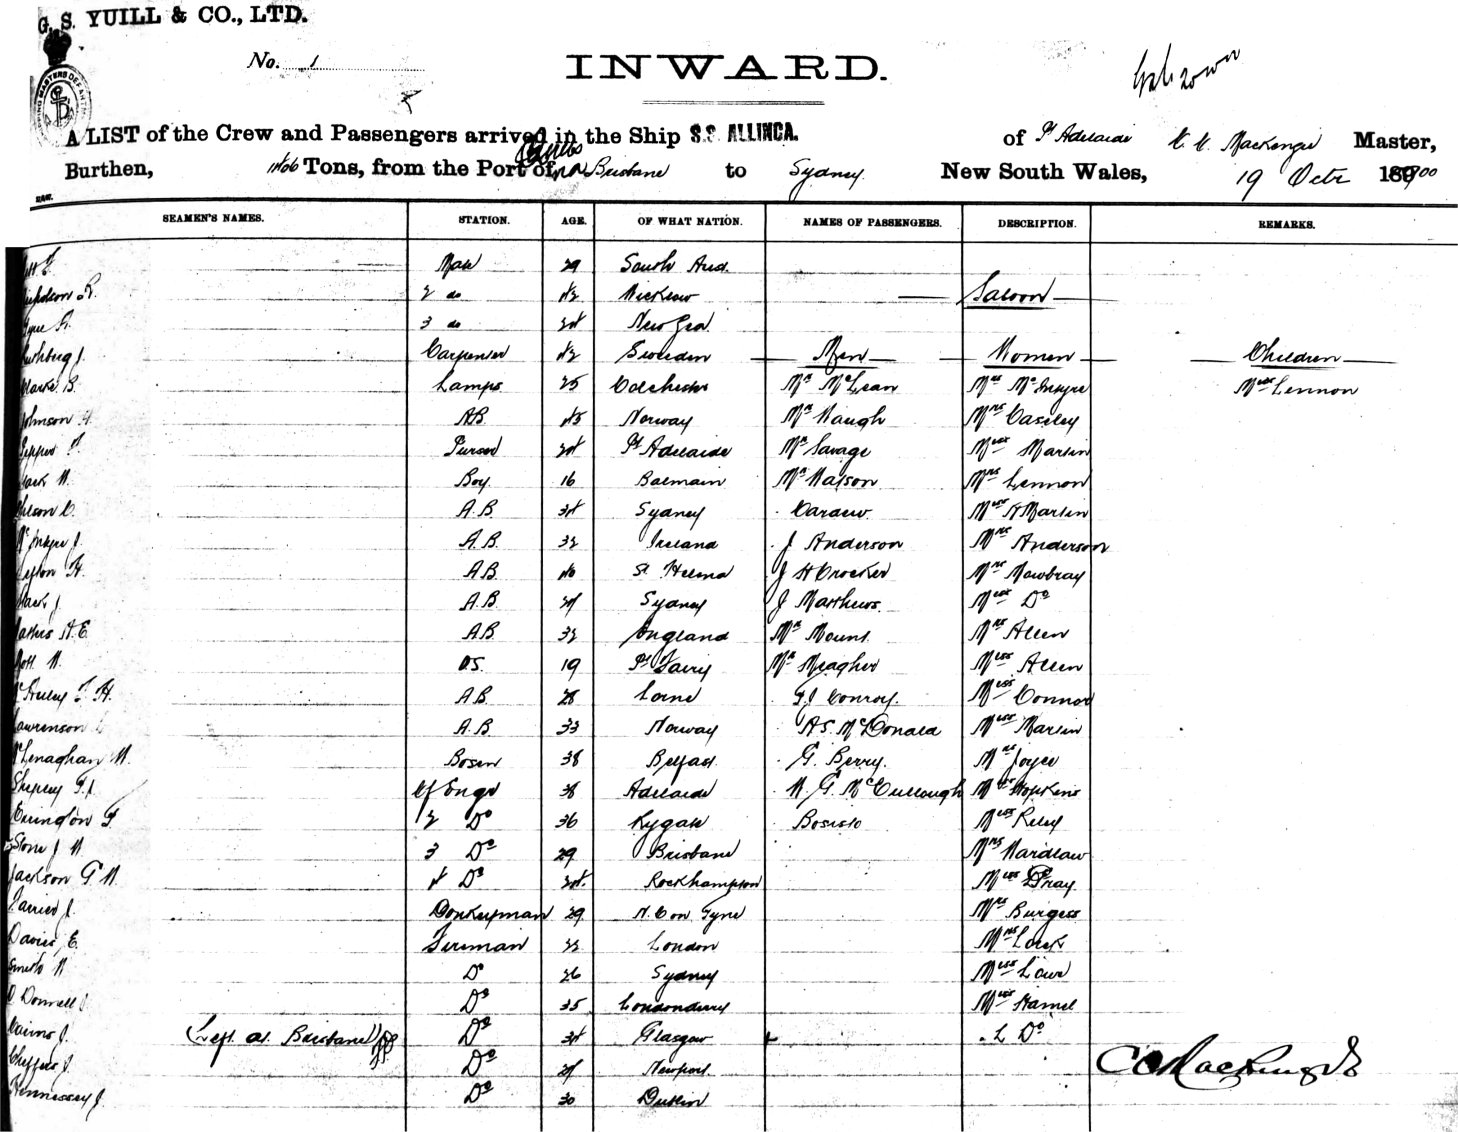 G. S. YUILL & CO., LTD.
No. 1
INWARD.
A LIST of the Crew and Passengers arrived in the Ship S.S. ALLINGA. of Pt Adelaide Mackenzie Master,
Burthen, Tons, from the Port of Cairns via Brisbane to Sydney New South Wales, 19 Octr 1900
SEAMEN'S NAMES. STATION. AGE. OF WHAT NATION. NAMES OF PASSENGERS. DESCRIPTION. REMARKS.
Mate 29 South Aus.
R. 2 do 42 Wicklow Saloon
3 do 24 New Zea
J. Carpenter 42 Sweden Men Women Children
Clarke B. Lamps 25 Colchester Mr McLean Mrs McIntyre Miss Lennon
Johnson A.B. 45 Norway Mr Waugh Mrs Caseley
Pepper F Purser 24 Pt Adelaide Mr Savage Miss Martin
W. Boy 16 Balmain Mr Watson Mrs Lennon
C. A.B. 34 Sydney Carew Miss N Martin
McIntyre J. A.B. 32 Ireland J Anderson Mrs Anderson
H. A.B. 40 St Helena J H Crocker Mrs Mowbray
J A.B. 24 Sydney J Matthews. Miss Do
H.E. A.B. 32 England Mr Mount Mrs Allen
W. O.S. 19 Pt Fairy Mr Meagher Miss Allen
F. H. A.B. 28 Lorne G J Conroy. Miss Connor
Lawrenson A.B. 33 Norway A S. McDonald Miss Martin
McLenaghan W. Bosun 38 Belfast G. Berry. Mrs Joyce
Shepley Cf Engr 38 Adelaide W. G McCullough Mrs Hopkins
Errington F 2 Do 36 Rygate Bosisto Miss Reley
Stone J W 3 Do 29 Brisbane Mrs Wardlaw
Jackson G W. 4 Do 24 Rockhampton Miss Gray
J. Donkeyman 29 N. Con Tyne Mrs Burgess
Davies E. Fireman 22 London Mrs Lock
Smith W Do 26 Sydney Miss Lowe
O'Donnell J. Do 35 Londonderry Miss Hamel
Cairns J. (Left at Brisbane) Do 34 Glasgow L Do
J. Do 24 Newport
Hennessey J. Do 30 Dublin